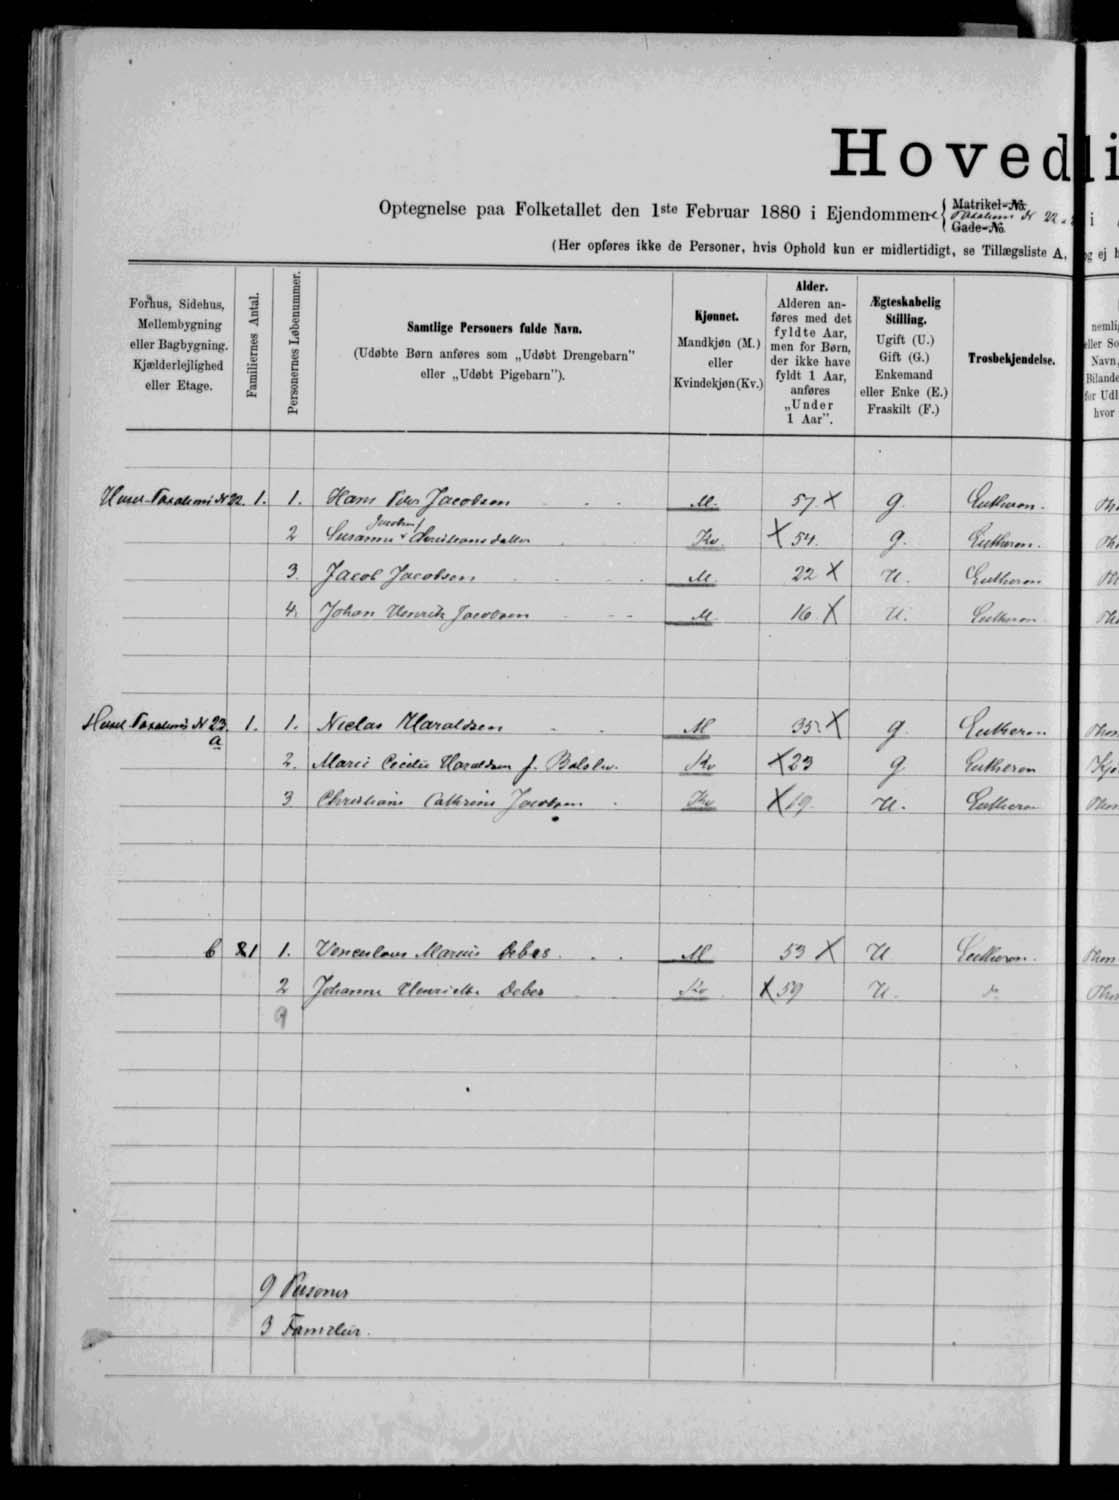 Hovedli
Optegnelse paa Folketallet den 1ste Februar 1880 i Ejendommene { Matrikel-No. Taxations N 22 Gade-No. i
(Her opføres ikke de Personer, hvis Ophold kun er midlertidigt, se Tillægsliste A, og ej h
Forhus, Sidehus, Mellembygning eller Bagbygning. Kjælderlejlighed eller Etage.
Familiernes Antal.
Personernes Løbenummer.
Samtlige Personers fulde Navn.
(Udøbte Børn anføres som „Udøbt Drengebarn" eller „Udøbt Pigebarn").
Kjønnet.
Mandkjøn (M.) eller Kvindekjøn (Kv.)
Alder.
Alderen anføres med det fyldte Aar, men for Børn, der ikke have fyldt 1 Aar, anføres „Under 1 Aar".
Ægteskabelig Stilling.
Ugift (U.) Gift (G.) Enkemand eller Enke (E.) Fraskilt (F.)
Trosbekjendelse.
nemli
eller So
Navn,
Bilande
for Udl
hvor
Huset Taxations N 22. 1. 1. Hans Peter Jacobsen M. 57 X g. Lutheran.
2 Susanne Jacobsen f Christiansdatter Kv. X 54. g. Lutheran.
3. Jacob Jacobsen M. 22 X U. Lutheran
4. Johan Henrik Jacobsen M. 16 X U. Lutheran
Huset Taxations N 23. a 1. 1. Niclas Haraldsen M 35. X g. Lutheran
2. Marie Cecilie Haraldsen f. Balslev. Kv X 23 g Lutheran
3 Christiane Cathrine Jacobsen Kv. X 19. U. Lutheran
b 1 1. Venceslaus Marius Debes M 53 X U Lutheran.
2 Johanne Henriette Debes Kv. X 59 U. do
9
9 Personer
3 Familier.